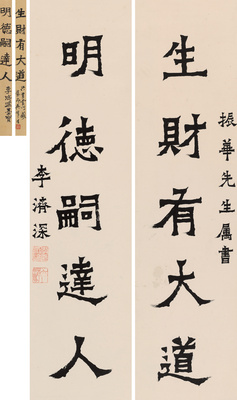 振華先生属書
生財有大道
明德嗣達人
李濟深
生財有大道
明德嗣達人